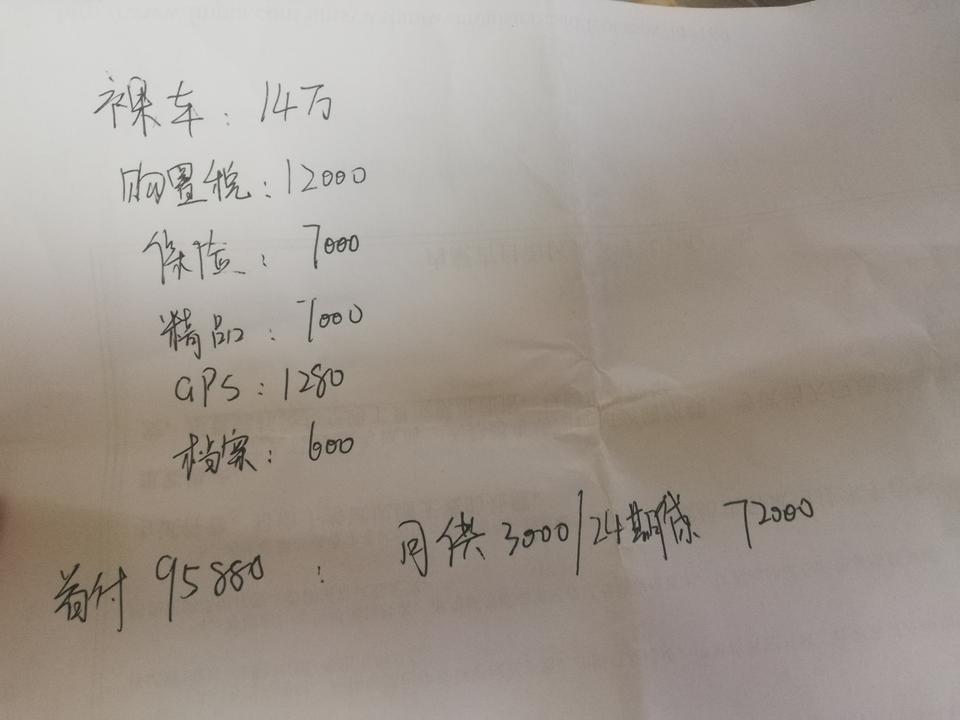 裸车：14万
购置税：12000
保险：7000
精品：7000
GPS：1280
档案：600
首付 95880：月供 3000/24期贷 72000